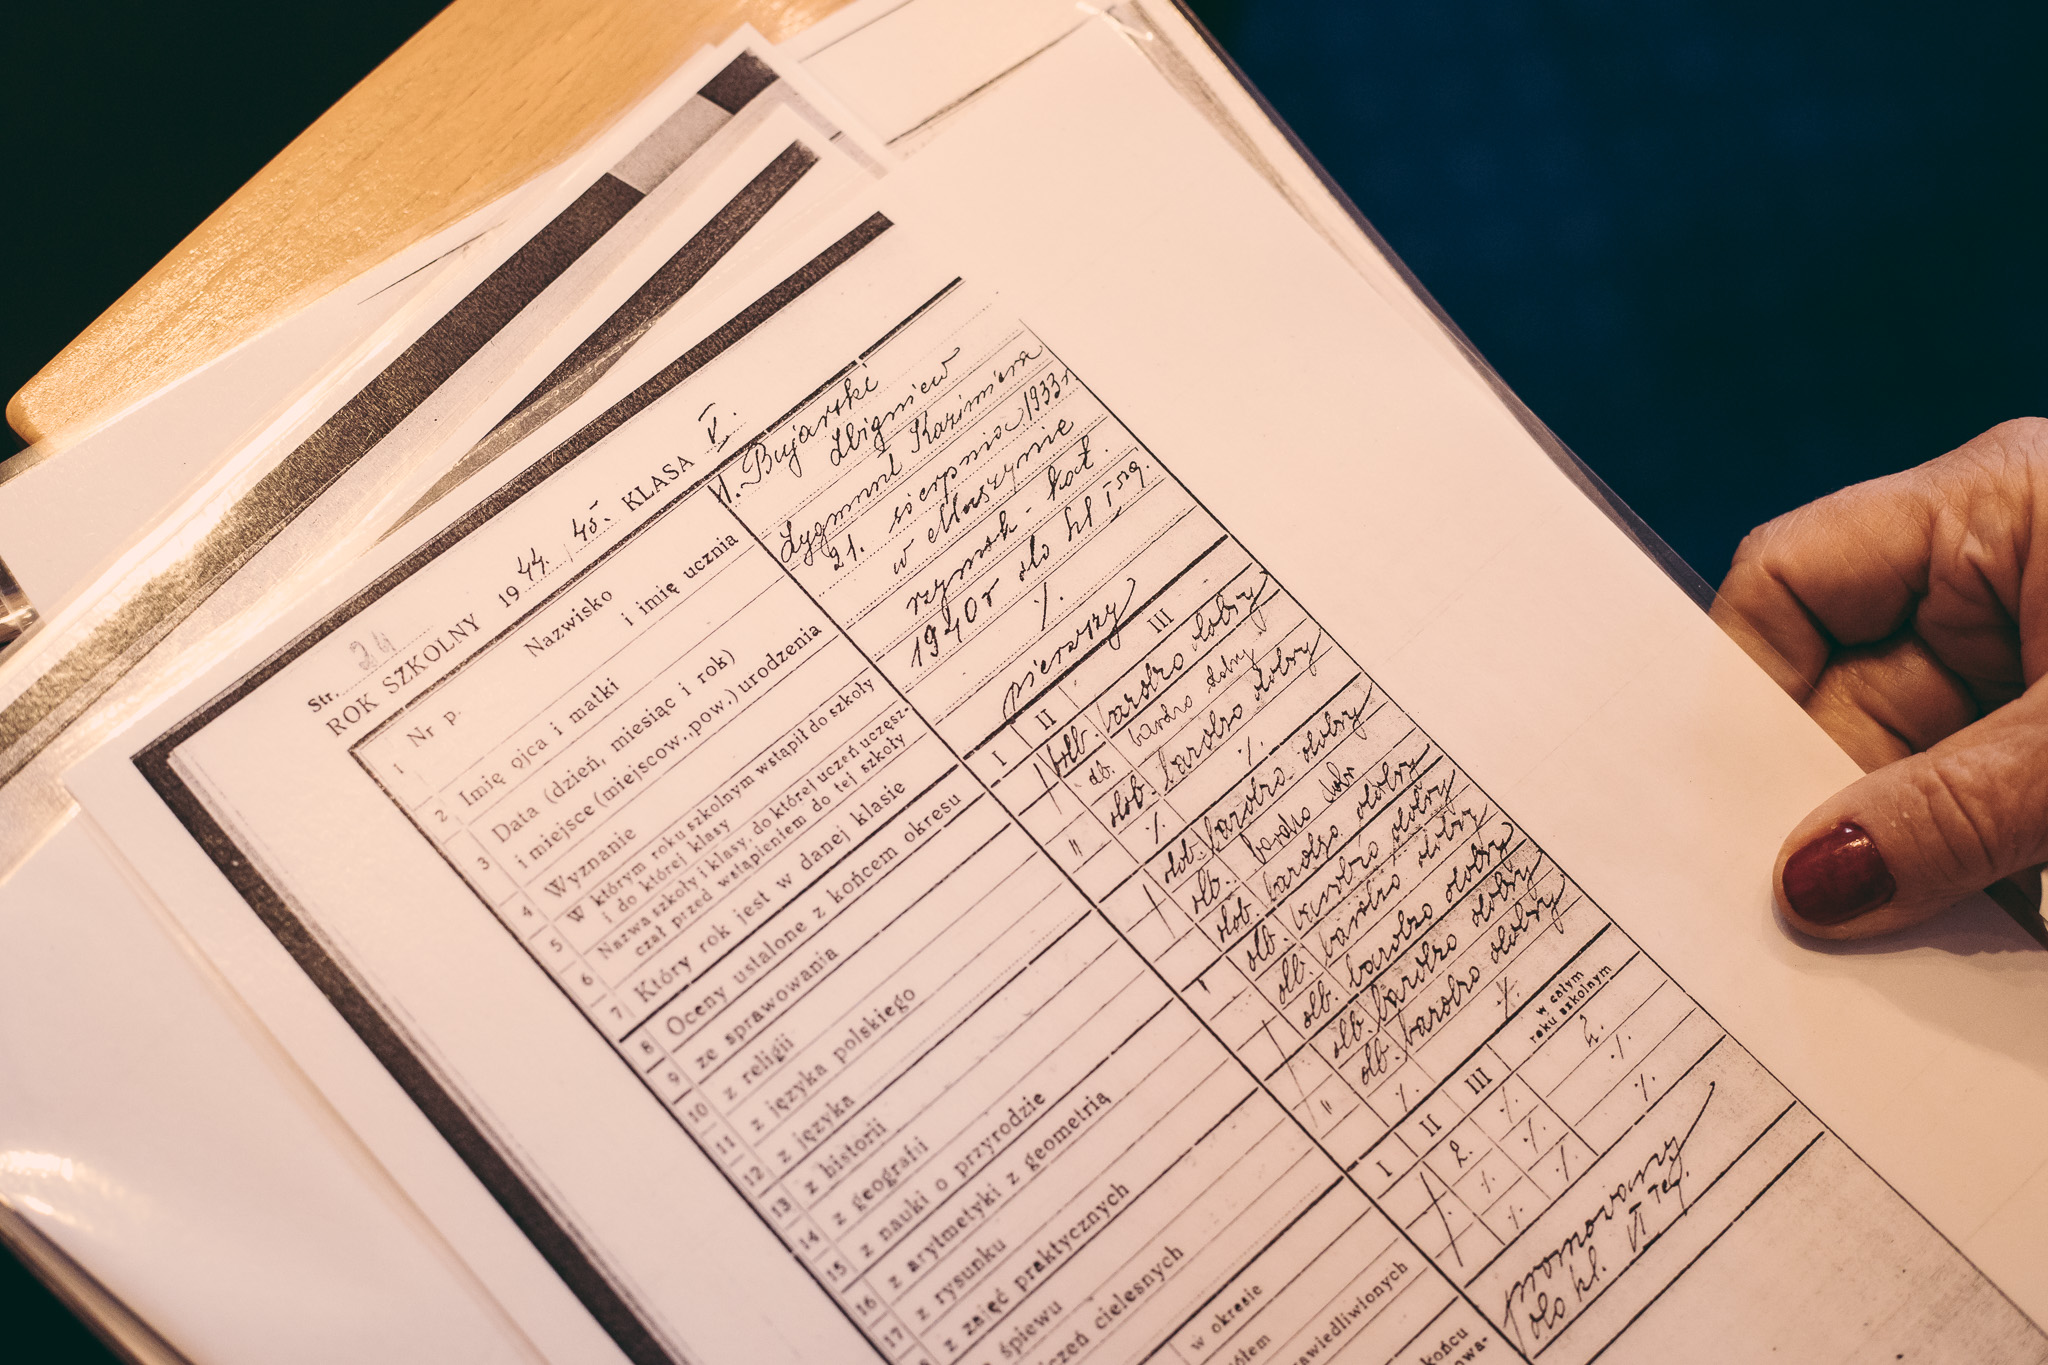 Str. 24
ROK SZKOLNY 1944/45. KLASA V.
1 Nr p. Nazwisko i imię ucznia 11. Bujarski Zbigniew
2 Imię ojca i matki Zygmunt Kazimiera
3 Data (dzień, miesiąc i rok) 21. sierpnia 1933 r.
i miejsce (miejscow., pow.) urodzenia w Muszynie
4 Wyznanie rzymsk-kat.
5 W którym roku szkolnym wstąpił do szkoły 1940 r do kl I szg.
i do której klasy
6 Nazwa szkoły i klasy, do której uczeń uczęsz- %.
czał przed wstąpieniem do tej szkoły
7 Który rok jest w danej klasie pierwszy
8 Oceny ustalone z końcem okresu I II III
9 ze sprawowania db. bardzo dobry
10 z religii db. bardzo dobry
11 z języka polskiego dob. bardzo dobry
12 z języka " % %.
13 z historii dob. bardzo dobry
14 z geografii db. bardzo dobr
15 z nauki o przyrodzie dob. bardzo dobry
16 z arytmetyki z geometrią db. bardzo dobry
17 z rysunku db. bardzo dobry
z zajęć praktycznych db. bardzo dobry
śpiewu db. bardzo dobry
cielesnych db. bardzo dobry
" %. %.
I II III w całym
roku szkolnym
w okresie 2. %. 2.
%. %. %.
%. %. %.
końcu promowany
do kl. VI tej.